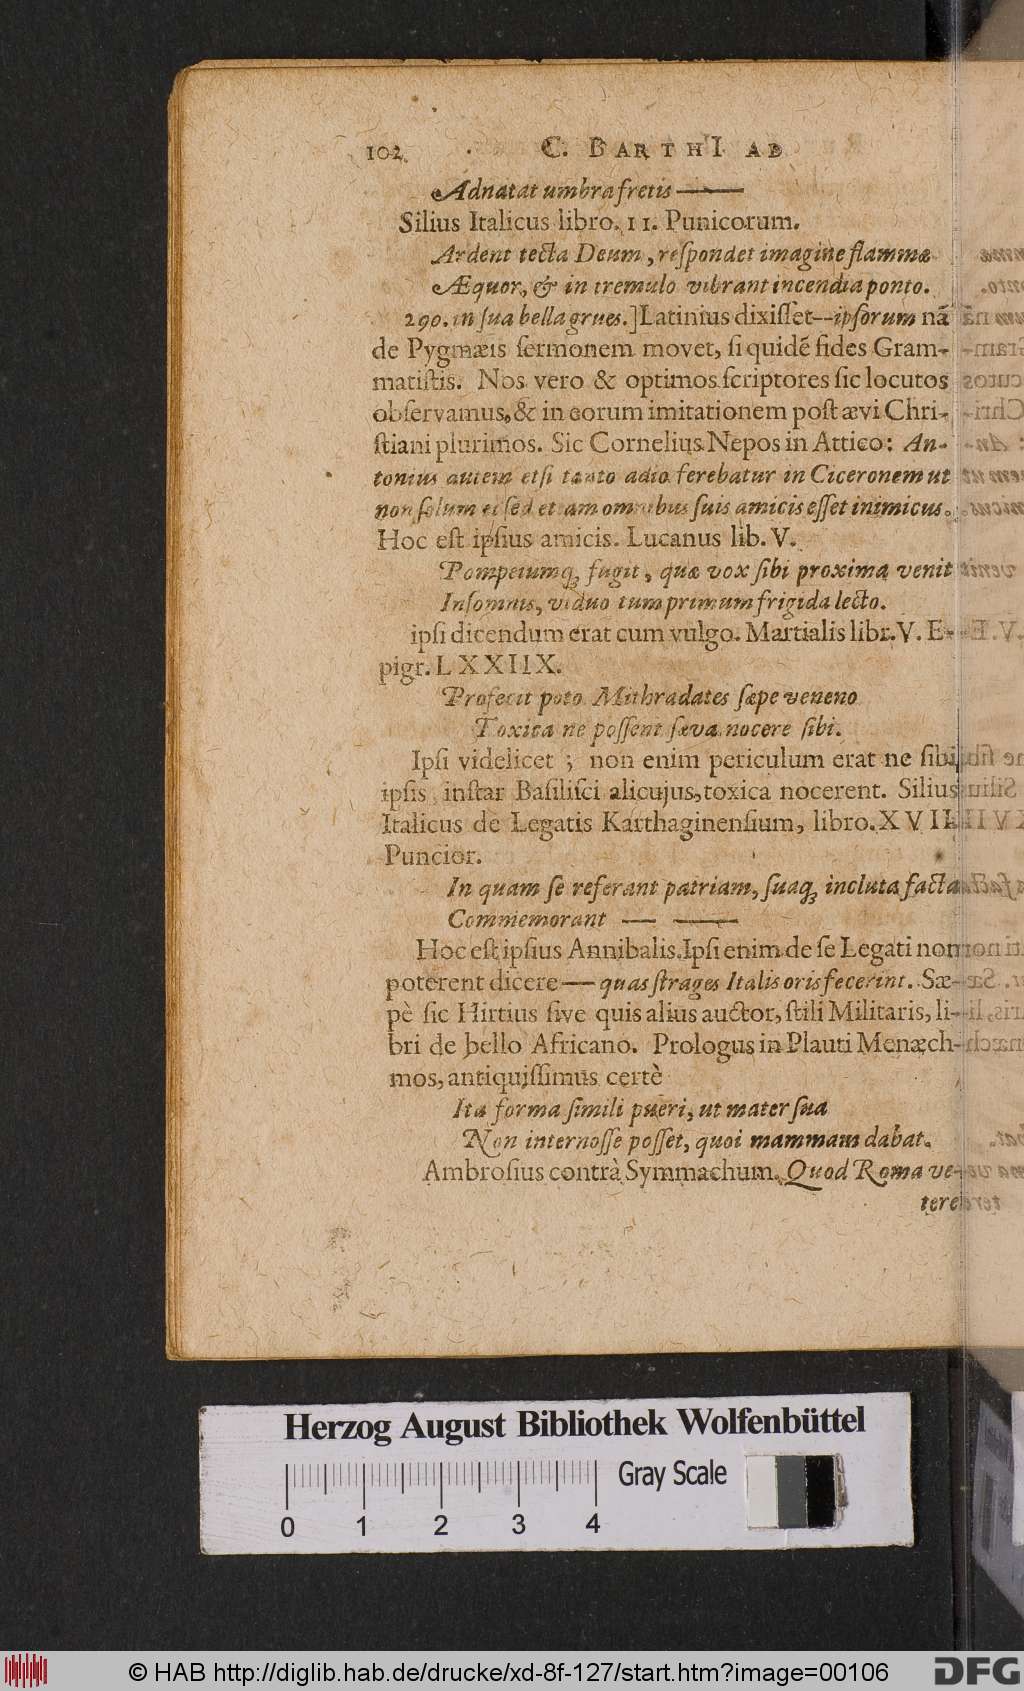 102 C. BARTHI AD
Adnatat umbra fretis ———
Silius Italicus libro. 11. Punicorum.
Ardent tecta Deum, reſpondet imagine flammæ
Æquor, & in tremulo vibrant incendia ponto.
290. in ſua bella grues.] Latinius dixiſſet--ipſorum nā
de Pygmæis ſermonem movet, ſi quidē fides Gram-
matiſtis. Nos vero & optimos ſcriptores ſic locutos
obſervamus, & in eorum imitationem poſt ævi Chri-
ſtiani plurimos. Sic Cornelius Nepos in Attico: An-
tonius autem etſi tanto adio ferebatur in Ciceronem ut
non ſolum ei ſed etiam omnibus ſuis amicis eſſet inimicus.
Hoc eſt ipſius amicis. Lucanus lib. V.
Pompeiumq; fugit, quæ vox ſibi proxima venit
Inſomnis, viduo tum primum frigida lecto.
ipſi dicendum erat cum vulgo. Martialis libr. V. E-
pigr. LXXIIX.
Profecit poto Mithradates ſæpe veneno
Toxica ne poſſent ſæva nocere ſibi.
Ipſi videlicet ; non enim periculum erat ne ſibi
ipſis inſtar Baſiliſci alicujus, toxica nocerent. Silius
Italicus de Legatis Karthaginenſium, libro. XVII.
Puncior.
In quam ſe referant patriam, ſuaq; incluta facta
Commemorant — ——
Hoc eſt ipſius Annibalis. Ipſi enim de ſe Legati non
poterent dicere — quas ſtrages Italis oris fecerint. Sæ-
pè ſic Hirtius ſive quis alius auctor, ſtili Militaris, li-
bri de bello Africano. Prologus in Plauti Menæch-
mos, antiquiſſimus certè
Ita forma ſimili pueri, ut mater ſua
Non internoſſe poſſet, quoi mammam dabat.
Ambroſius contrà Symmachum. Quod Roma ve-
tere
Herzog August Bibliothek Wolfenbüttel
Gray Scale
0 1 2 3 4
© HAB http://diglib.hab.de/drucke/xd-8f-127/start.htm?image=00106
DFG